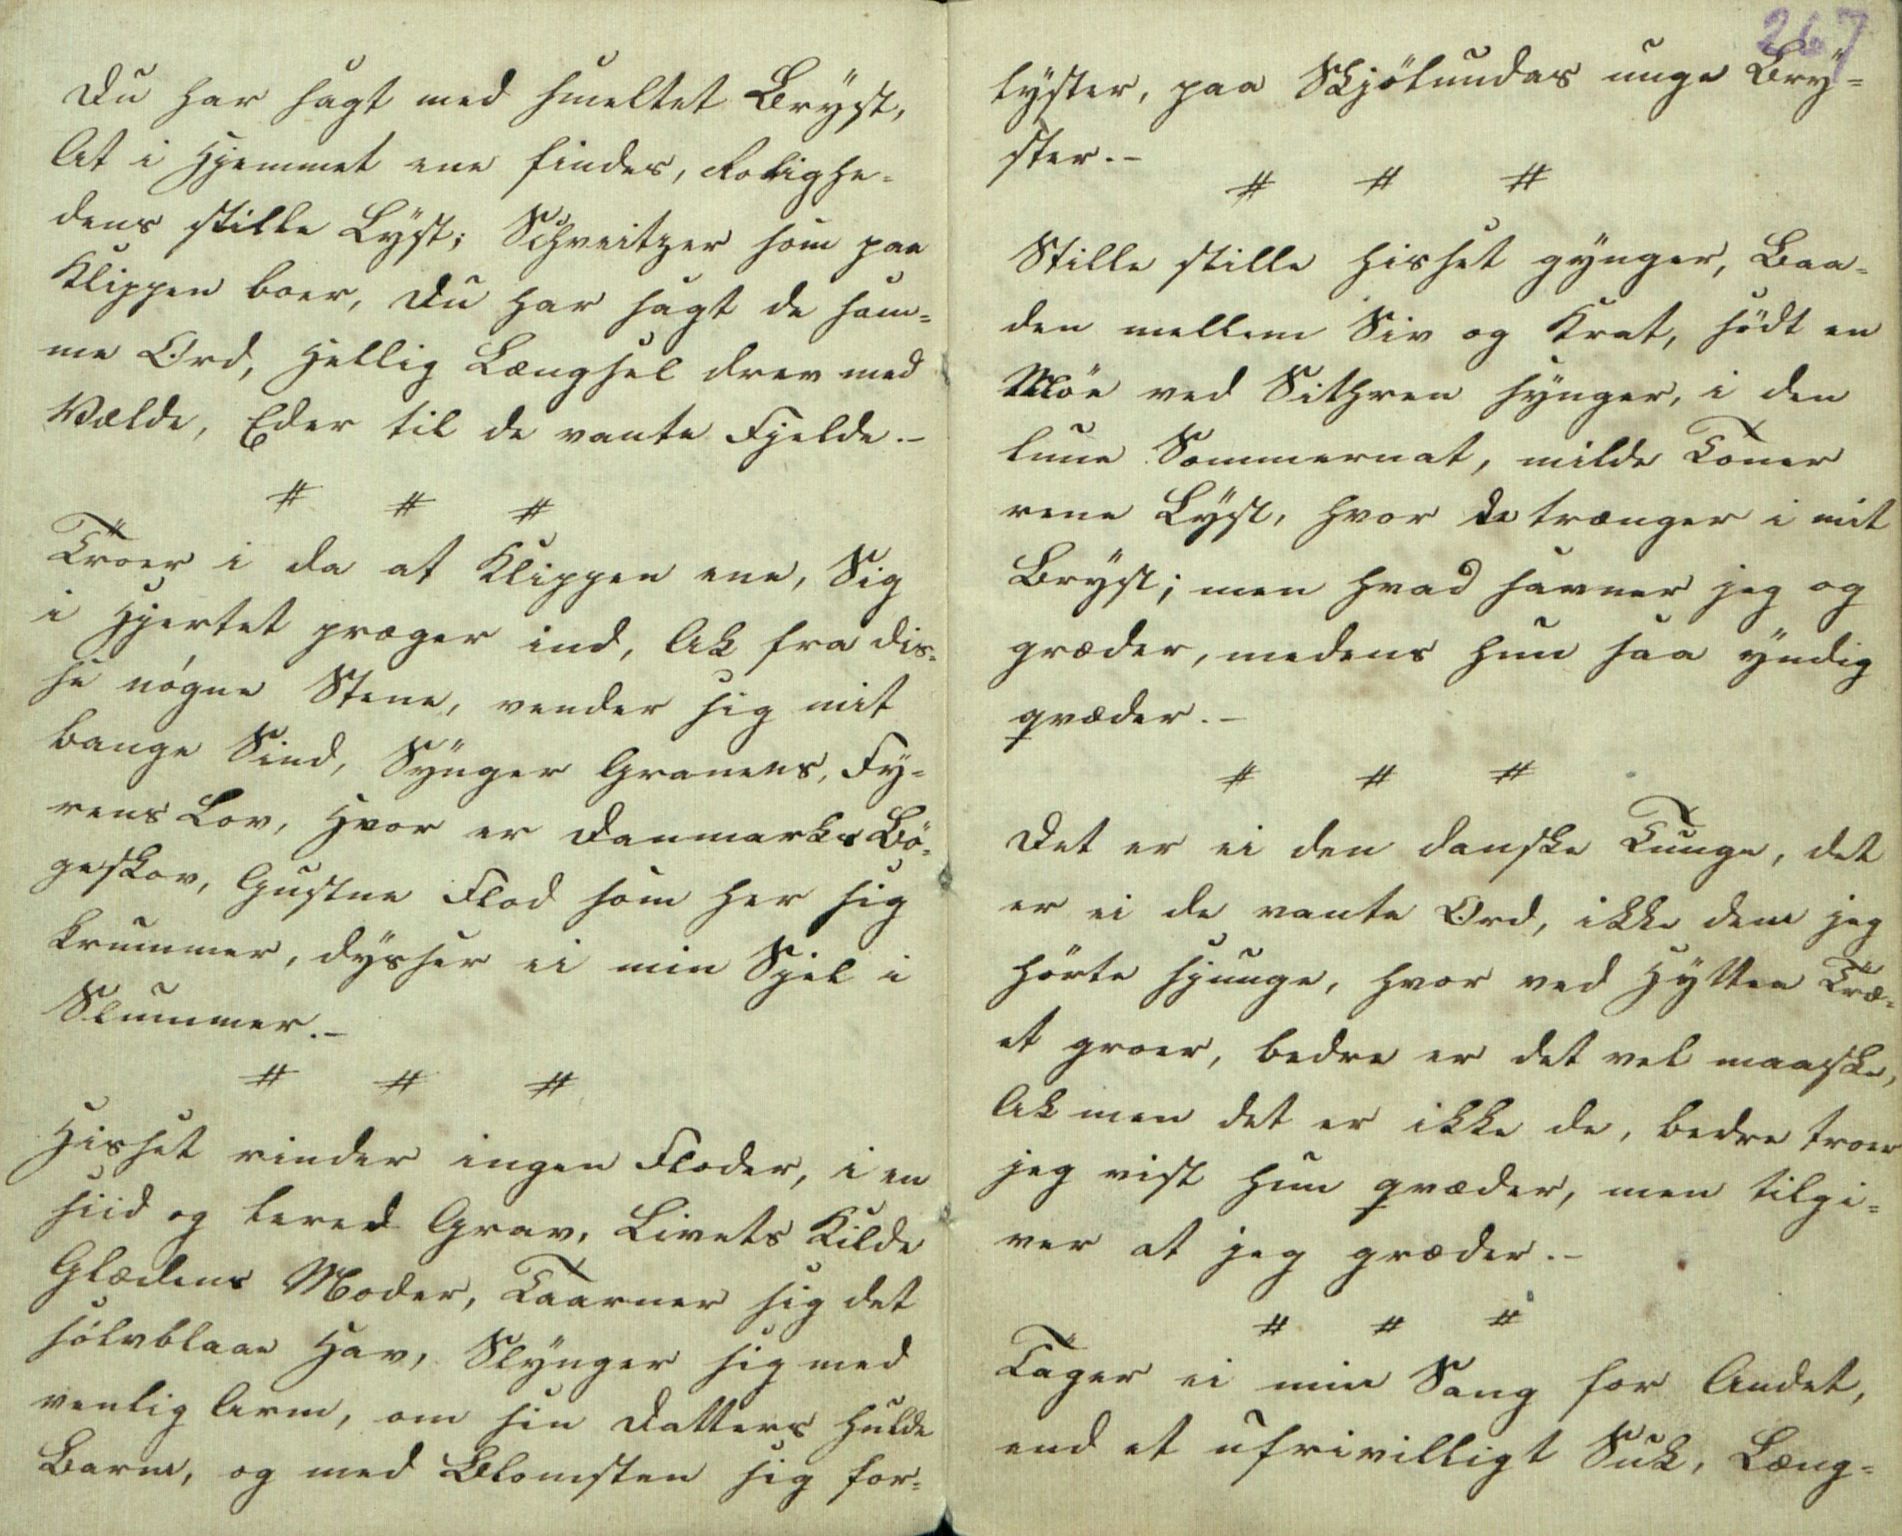 Du har sagt med smeltet Brÿst,
At i Hjemmet ene findes, Rolighe-
dens stille Lÿst; Schveitzer som paa
Klippen boer, Du har sagt de sam=
me Ord, Hellig Længsel drev med
Vælde, Eder til de vante Fjelde.-
# # #
Troer i da at Klippen ene, Sig
i Hjertet præger ind, Ak fra dis-
se nögne Stene, vender sig mit
bange Sind, Sÿnger Granens, Fÿ=
rens Lov, Hvor er Danmarks Bö-
geskov, Gustne Flod som her sig
krummer, dÿsser ei min Sjel i
Slummer.-
# # #
Hisset rinder ingen Floder, i en
siid og lered Grav, Livets Kilde
Glædens Moder, Taarner sig det
sölvblaae Hav, Slÿnger sig med
venlig Arm, om sin Datters hulde
Barm, og med Blomsten sig for=
267
lÿster, paa Skjölundas unge Brÿ=
ster.-
# # #
Stille stille hisset gÿnger, Baa-
den mellem Siv og Krat, södt en
Möe ved Sithren sÿnger, i den
lune Sommernat, milde Toner
rene Lÿst, hvor de trænger i mit
Brÿst; men hvad savner jeg og
græder, medens hun saa ÿndig
qvæder.-
# # #
Det er ei den danske Tunge, det
er ei de vante Ord, ikke dem jeg
hörte sjunge, hvor ved Hÿtten Træ-
et groer, bedre er det vel maaske,
Ak men det er ikke de, bedre troer
jeg vist hun qvæder, men tilgi=
ver at jeg græder.-
# # #
Tager ei min Sang for Andet,
end et ufrivilligt Suk, Læng=